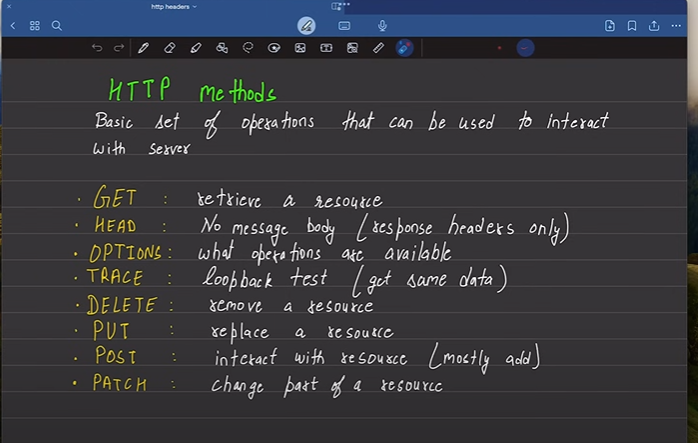 http headers
HTTP methods
Basic set of operations that can be used to interact
with server
· GET : retrieve a resource
· HEAD : No message body (response headers only)
· OPTIONS : what operations are available
· TRACE : loopback test (get same data)
· DELETE : remove a resource
· PUT : replace a resource
· POST : interact with resource (mostly add)
· PATCH : change part of a resource